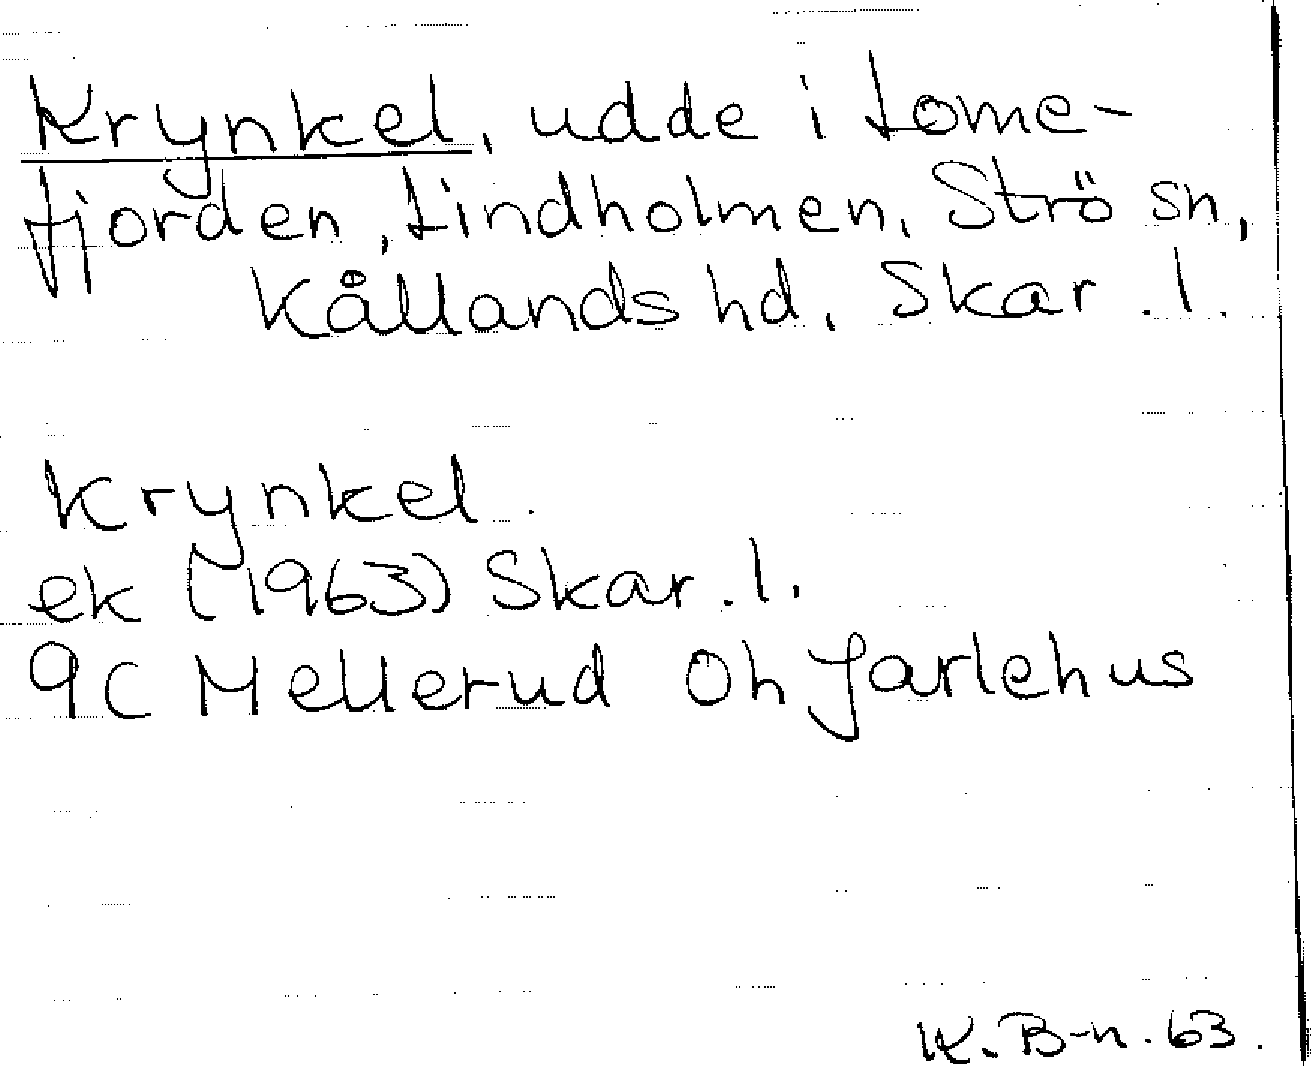 Krynkel, udde i Lome-
fjorden, Lindholmen, Strö sn,
Kållands hd, Skar. l.
Krynkel
ek (1963) Skar. l.
9C Mellerud Oh Jarlehus
K. B-n. 63.